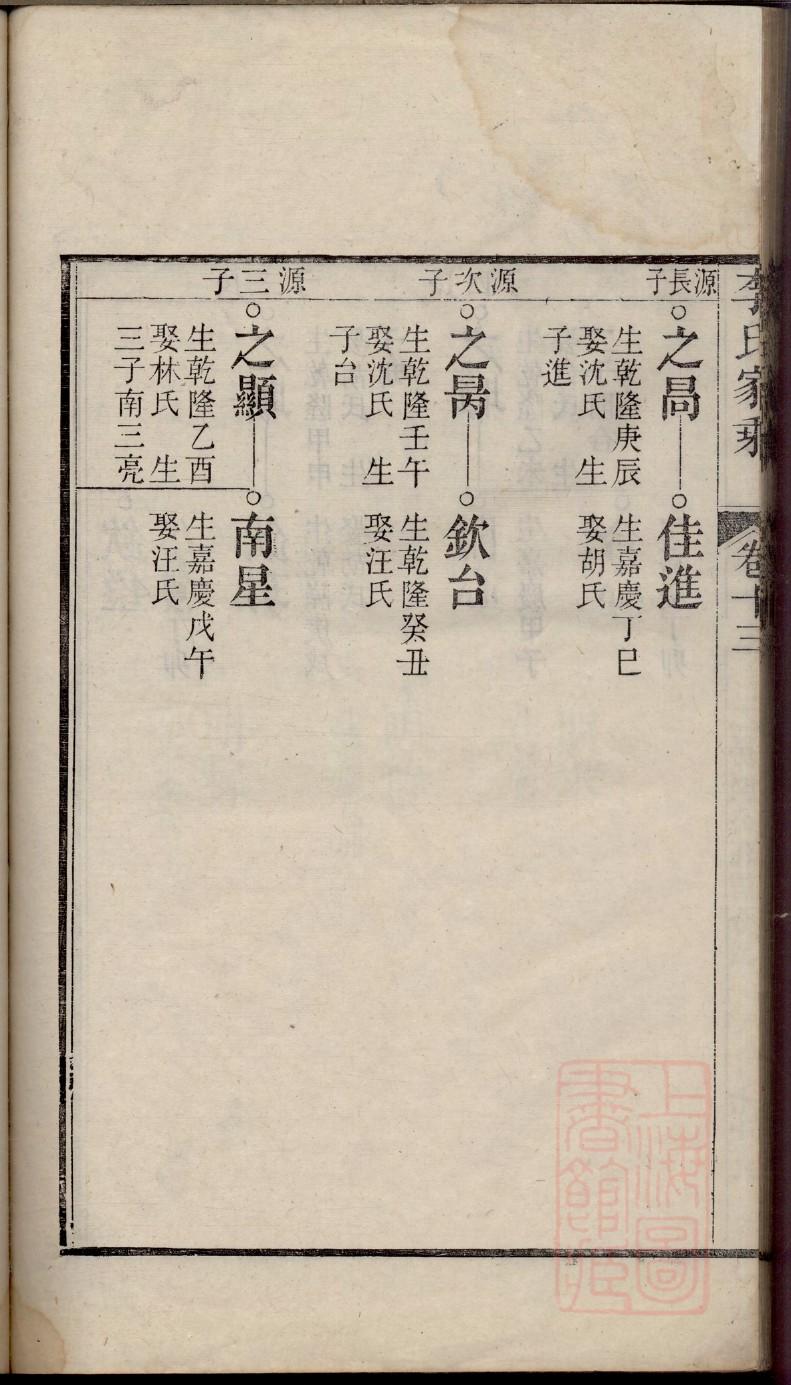 李氏家乘
卷十三
源長子
之
生乾隆庚辰
娶沈氏　生
子進
佳進
生嘉慶丁巳
娶胡氏
源次子
之昺
生乾隆壬午
娶沈氏　生
子台
欽台
生乾隆癸丑
娶汪氏
源三子
之顯
生乾隆乙酉
娶林氏　生
三子南三亮
南星
生嘉慶戊午
娶汪氏
上海圖
書館藏